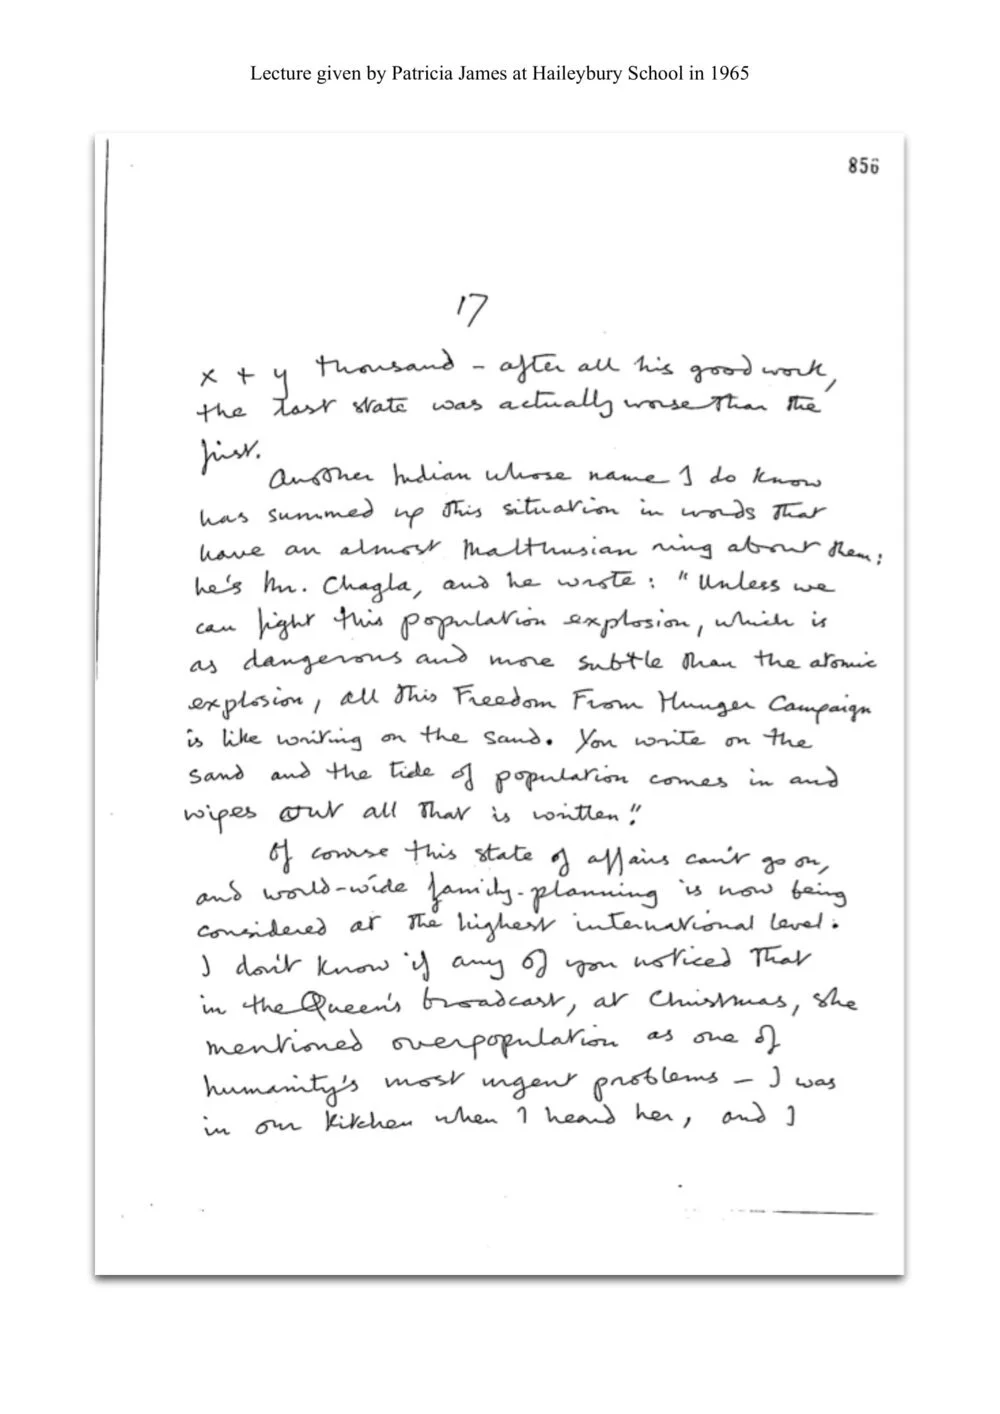 Lecture given by Patricia James at Haileybury School in 1965
856
17
x + y thousand – after all his good work,
the last state was actually worse than the
first.
Another Indian whose name I do know
has summed up this situation in words that
have an almost Malthusian ring about them;
he's Mr. Chagla, and he wrote: "Unless we
can fight this population explosion, which is
as dangerous and more subtle than the atomic
explosion, all this Freedom From Hunger Campaign
is like writing on the sand. You write on the
sand and the tide of population comes in and
wipes out all that is written".
Of course this state of affairs can't go on,
and world-wide family-planning is now being
considered at the highest international level.
I don't know if any of you noticed that
in the Queen's broadcast, at Christmas, she
mentioned overpopulation as one of
humanity's most urgent problems – I was
in our kitchen when I heard her, and I